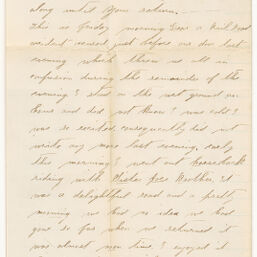 along until your return.
This is Friday morning Gus a Rail Road
accident occured just before our door last
evening which threw us all in
confusion during the remainder of the
evening & when on the wet ground no
and did not know I was cold I
was so excited, consequently did not
write any more last evening, early
this morning I went out horseback
riding with Mother. It
was a delightful road and a pretty
morning we had no idea we had
gone so far when we returned it
was almost noon time. I enjoyed it